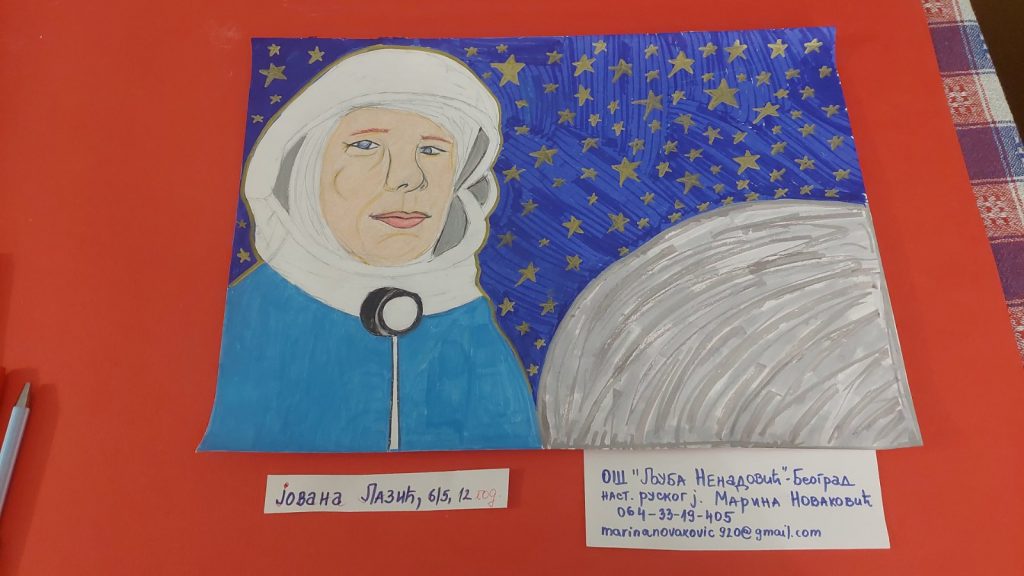 Јована Лазић, 6/5, 12 год.
ОШ "Љуба Ненадовић"-Београд
наст. руског ј. Марина Новаковић
064-33-19-405
marina.novakovic920@gmail.com